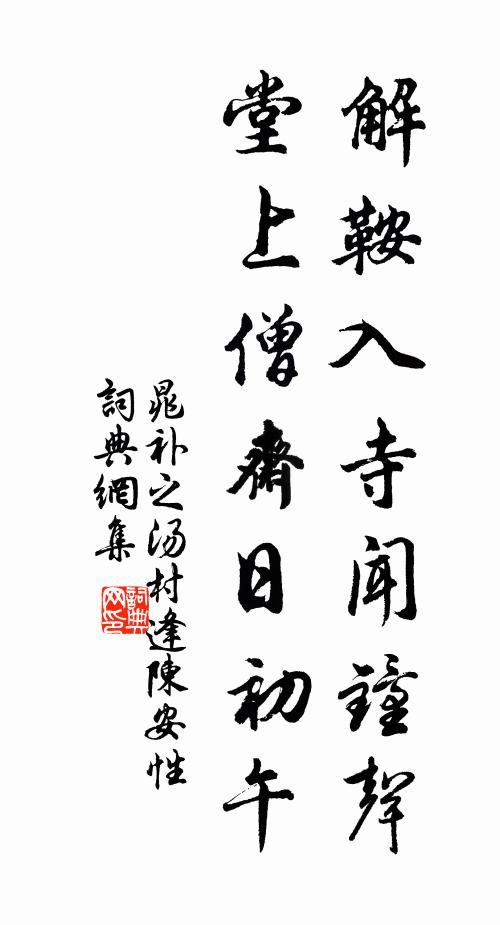 解鞍入寺聞鐘聲
堂上僧齋日初午
晁补之湯村逢陳安性
詞典網集
詞典网印